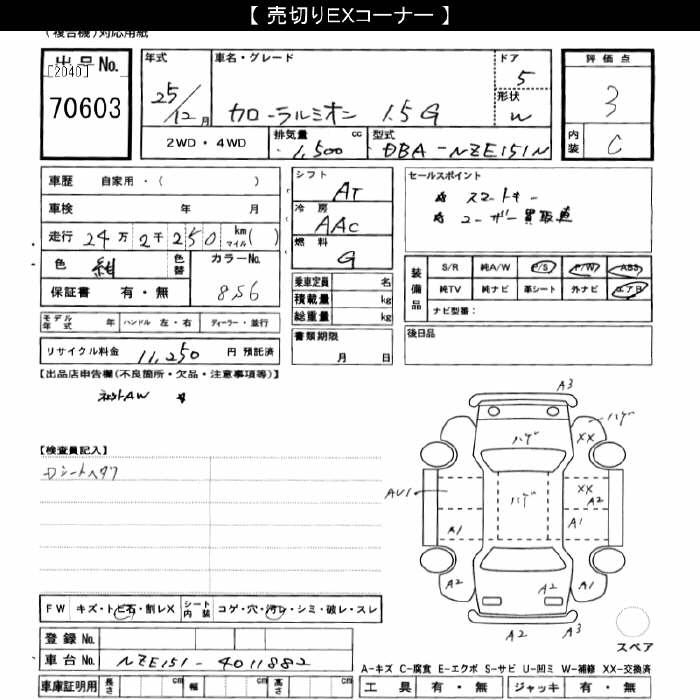 【 売切りEXコーナー 】
(複合機)対応用紙
出品No. [2040] 70603
年式 25/12月
車名・グレード カローラルミオン 1.5 G
ドア 5
形状 W
評価点 3
内装 C
2WD・4WD
排気量 1,500 cc
型式 DBA-NZE151N
車歴 自家用・( )
車検 年 月
走行 24万2千250 km マイル( )
色 紺 色替
カラーNo. 8S6
保証書 有・無
シフト AT
冷房 AAC
燃料 G
乗車定員 名
積載量 kg
総重量 kg
セールスポイント
スマートキー
ユーザー買取車
装備品 S/R 純A/W P/S P/W ABS
純TV 純ナビ 革シート 外ナビ エアB
ナビ型番:
モデル年式 年 ハンドル 左・右 ディーラー・並行
リサイクル料金 11,250 円 預託済
書類期限 月 日
後日品
【出品店申告欄(不良箇所・欠品・注意事項等)】
社外AW
【検査員記入】
Dシートヘタリ
A3
ハゲ
ハゲ XX
ハゲ XX
AU1 A2
A1 A1
A2 A1
A2 A3
FW キズ・トビ石・割レX シート内装 コゲ・穴・汚レ・シミ・破レ・スレ
登録No.
車台No. NZE151-4011882
車庫証明用 長さ cm 幅 cm 高さ cm
スペア
A-キズ C-腐食 E-エクボ S-サビ U-凹ミ W-補修 XX-交換済
工具 有・無 ジャッキ 有・無